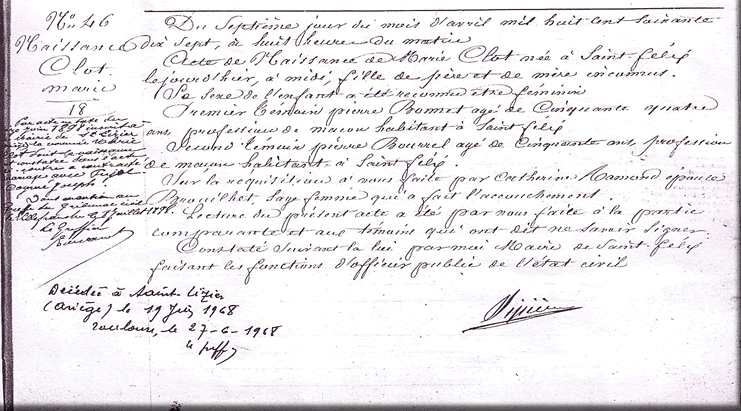 No 46
Naissance
Clot
marie
18
Par acte en date du
juin 1898
mariage avec Pujol
Joseph
Le Greffier
Du Septième jour du mois d'avril mil huit cent soixante
dix sept, à huit heure du matin
Acte de Naissance de Marie Clot née à Saint-félix
le jour d'hier, à midi, fille de père et de mère inconnus.
Le Sexe de l'enfant a été reconnu être féminin
Premier témoin pierre Bonnet agé de Cinquante quatre
ans profession de maçon habitant à Saint félix
Second témoin pierre Bourrel agé de Cinquante ans profession
de maçon habitant à Saint félix.
Sur la requisition à nous faite par Catherine Raimond épouse
Brouilhet, Sage femme qui a fait l'accouchement.
Lecture du présent acte a été par nous faite à la partie
comparante et aux temoins qui ont dit ne savoir Signer.
Constaté Suivant la loi par moi Maire de Saint-félix
faisant les fonctions d'officier public de l'état civil
Décédée à Saint-Lizier
(Ariège) le 19 Juin 1968
Toulouse, le 27-6-1968
le greff